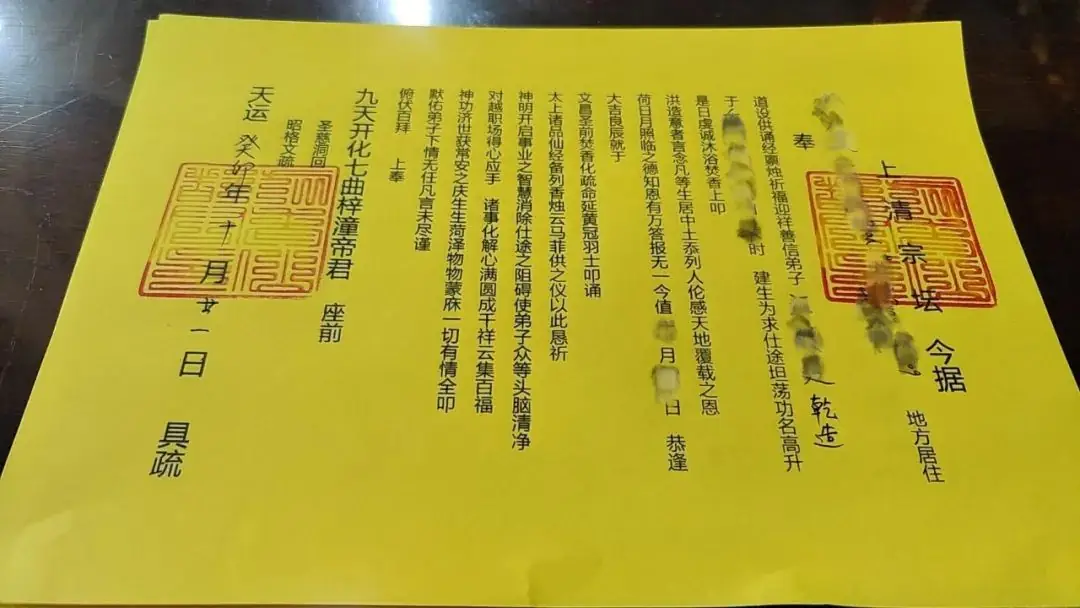 上清宗坛 今据
地方居住
奉
道设供诵经禀烛祈福迎祥善信弟子 乾造
于 时 建生为求仕途坦荡功名高升
是日虔诚沐浴焚香上叩
洪造意者言念凡等生居中土忝列人伦感天地覆载之恩
荷日月照临之德知恩有万答报无一今值 月 日 恭逢
大吉良辰就于
文昌圣前焚香化疏命延黄冠羽士叩诵
太上诸品仙经备列香烛云马菲供之仪以此恳祈
神明开启事业之智慧消除仕途之阻碍使弟子众等头脑清净
对越职场得心应手 诸事化解心满圆成千祥云集百福
神功济世获常安之庆生生荷泽物物蒙庥一切有情全叩
默佑弟子下情无任凡言未尽谨
俯伏百拜 上奉
九天开化七曲梓潼帝君 座前
圣慈洞回
昭格文疏
天运 癸卯年十一月廿一日 具疏